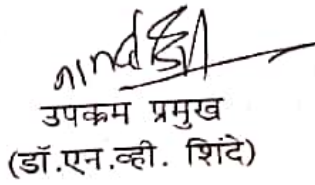 उपक्रम प्रमुख
(डॉ.एन.व्ही. शिंदे)